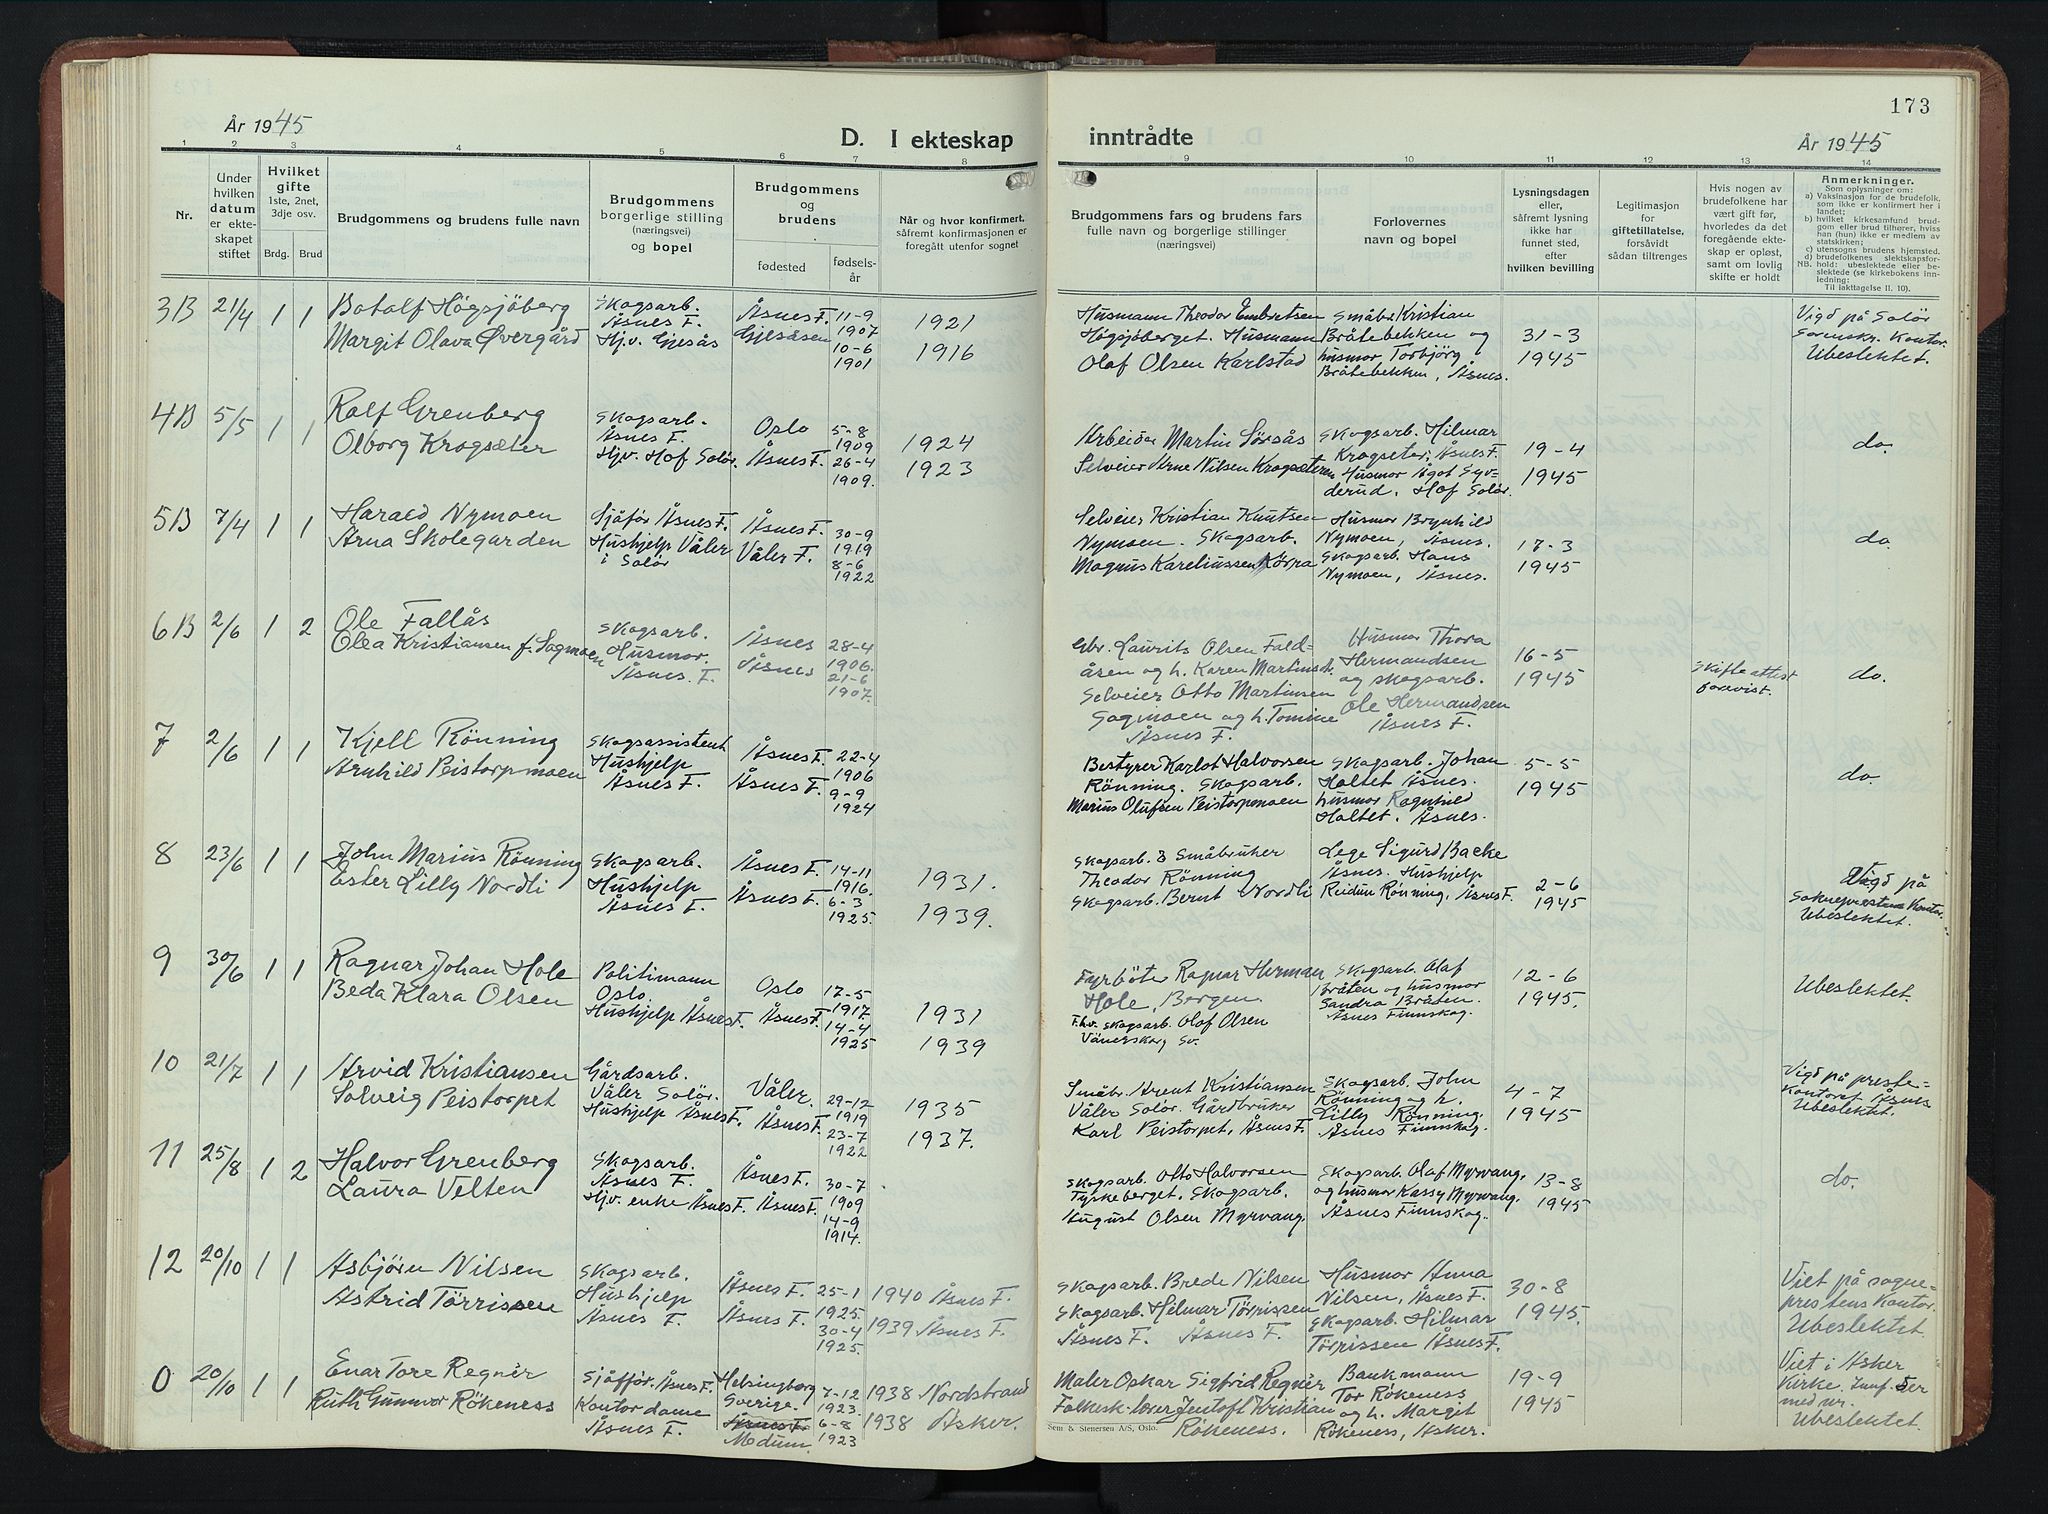 173
År 1945
D. I ekteskap
inntrådte
År 1945
1 2 3 4 5 6 7 8
9 10 11 12 13 14
Nr.
Under
hvilken
datum
er ekte-
skapet
stiftet
Hvilket
gifte
1ste, 2net,
3dje osv.
Brdg. Brud
Brudgommens og brudens fulle navn
Brudgommens
borgerlige stilling
(næringsvei)
og bopel
Brudgommens
og
brudens
fødested
fødsels-
år
Når og hvor konfirmert,
såfremt konfirmasjonen er
foregått utenfor sognet
Brudgommens fars og brudens fars
fulle navn og borgerlige stillinger
(næringsvei)
Forlovernes
navn og bopel
Lysningsdagen
eller,
såfremt lysning
ikke har
funnet sted,
efter
hvilken bevilling
Legitimasjon
for
giftetillatelse,
forsåvidt
sådan tiltrenges
Hvis nogen av
brudefolkene har
vært gift før,
hvorledes da det
foregående ekte-
skap er opløst,
samt om lovlig
skifte er holdt
Anmerkninger.
Som oplysninger om:
a) Vaksinasjon for de brudefolk,
som ikke er konfirmert her i
landet;
b) hvilket kirkesamfund brud-
gom eller brud tilhører, hviss
han (hun) ikke er medlem av
statskirken;
c) utensogns brudens hjemsted.
d) brudefolkenes slektskapsfor-
NB. hold: ubeslektede eller be-
slektede (se kirkebokens inn-
ledning:
Til Iakttagelse II. 10).
3B 21/4 1 1
Botolf Högsjöberg
Margit Olava Øvergård
Skogsarb.
Åsnes F.
Hjv. Gjesås
Åsnes F.
Gjesåsen
11-9
1907
10-6
1901
1921
1916
Husmann Theodor Embretsen
Högsjöberget. Husmann
Olaf Olsen Karlstad
Småbr. Kristian
Bråtebekken og
husmor Torbjörg
Bråtebekken, Åsnes.
31-3
1945
Vigd på Solör
Sorenskr. Kontor.
Ubeslektet.
4B 5/5 1 1
Rolf Grenberg
Olborg Krogsæter
Skogsarb.
Åsnes F.
Hjv. Hof Solör.
Oslo
Åsnes F.
5-8
1909
26-4
1909.
1924
1923
Arbeider Martin Sörsås
Selveier Arne Nilsen Krogsæteren
Skogsarb. Hilmar
Krogseter, Åsnes F.
Husmor Ågot Syv-
derud. Hof Solör.
19-4
1945
do.
5B 7/4 1 1
Harald Nymoen
Arna Skolegarden
Sjåför Åsnes F.
Hushjelp Våler
i Solör
Åsnes F.
Våler F.
30-9
1919
8-6
1922
Selveier Kristian Knutsen
Nymoen. Skogsarb.
Magnus Kareliussen Körpa
Husmor Brynhild
Nymoen, Åsnes.
Skogsarb. Hans
Nymoen, Åsnes.
17-3
1945
do.
6B 2/6 1 2
Ole Fallås
Olea Kristiansen f. Sagmoen
Skogsarb.
Husmor.
Åsnes. F.
Åsnes
Åsnes
28-4
1906.
21-6
1907.
Gbr. Laurits Olsen Fald-
åsen og h. Karen Martinsdt.
Selveier Otto Martinsen
Sagmoen og h. Tomine
Åsnes F.
Husmor Thora
Hermandsen
og skogsarb.
Ole Hermandsen
Åsnes F.
16-5
1945
Skifteattest
forevist.
do.
7 2/6 1 1
Kjell Rönning
Arnhild Peistorpmoen
Skogsassistent
Hushjelp
Åsnes F.
Åsnes F.
Åsnes F.
22-4
1906
9-9
1924
Bestyrer Karlot Halvorsen
Rönning. Skogsarb.
Marius Olufsen Peistorpmoen
Skogsarb. Johan
Holtet Åsnes.
husmor Ragnhild
Holtet. Åsnes.
5-5
1945
do.
8 23/6 1 1
John Marius Rönning
Ester Lilly Nordli
Skogsarb.
Hushjelp
Åsnes F.
Åsnes F.
Åsnes F.
14-11
1916.
6-3
1925.
1931.
1939.
Skogsarb. & Småbruker
Theodor Rönning
Skogsarb. Bernt Nordli
Lege Sigurd Backe
Åsnes. Hushjelp
Reidun Rönning, Åsnes F.
2-6
1945
Vigd på
Sokneprestens Kontor.
Ubeslektet.
9 30/6 1 1
Ragnar Johan Hole
Beda Klara Olsen
Politimann
Oslo
Hushjelp Åsnes F.
Oslo
Åsnes F.
17-5
1917.
14-4
1925
1931
1939
Fyrböter Ragnar Herman
Hole, Bergen.
F.hv. skogsarb. Olof Olsen
Vänerskog Sv.
Skogsarb. Olaf
Bråten og husmor
Sandra Bråten.
Åsnes Finnskog.
12-6
1945.
Ubeslektet.
10 21/7 1 1
Arvid Kristiansen
Solveig Peistorpet
Gårdsarb.
Våler Solör.
Hushjelp Åsnes F.
Våler.
Åsnes F.
29-12
1919
23-7
1922
1935
1937.
Småbr. Arent Kristiansen
Våler Solör. Gårdbruker
Karl Peistorpet, Åsnes F.
Skogsarb. John
Rönning og h.
Lilly Rönning.
Åsnes Finnskog.
4-7
1945
Vigd på preste-
kontoret Åsnes
Ubeslektet.
11 25/8 1 2
Halvor Grenberg
Laura Velten
Skogsarb.
Åsnes F.
Hjv. enke Åsnes F.
Åsnes F.
Åsnes F.
30-7
1909
14-9
1914.
Skogsarb. Otto Halvorsen
Tyskeberget. Skogsarb.
August Olsen Myrvang.
Skogsarb. Olaf Myrvang.
og husmor Kassy Myrvang.
Åsnes Finnskog.
13-8
1945
do.
12 20/10 1 1
Asbjörn Nilsen
Astrid Törrissen
Skogsarb.
Hushjelp
Åsnes F.
Åsnes F.
Åsnes F.
25-1
1925.
30-4
1925.
1940 Åsnes F.
1939 Åsnes F.
Skogsarb. Brede Nilsen
Skogsarb. Hilmar Törrissen
Åsnes F. Åsnes F.
Husmor Anna
Nilsen, Åsnes F.
Skogsarb. Hilmar
Törrissen Åsnes F.
30-8
1945.
Viet på sogne-
prestens Kontor.
Ubeslektet.
0 20/10 1 1
Enar Tore Regnér
Ruth Gunvor Rökeness
Sjåför. Åsnes F.
Kontordame
Åsnes F.
Helsingborg
Sverige.
Åsnes F.
Modum.
7-12
1923.
6-8
1923
1938 Nordstrand
1938 Asker.
Maler Oskar Sigfrid Regnér
Folkesk.lærer Jentoft Kristian
Rökeness.
Bankmann
Tor Rökeness
og h. Margit
Rökeness, Asker.
19-9
1945
Viet i Asker
Kirke.
med nr.
Ubeslektet.
Sem & Stenersen A/S, Oslo.